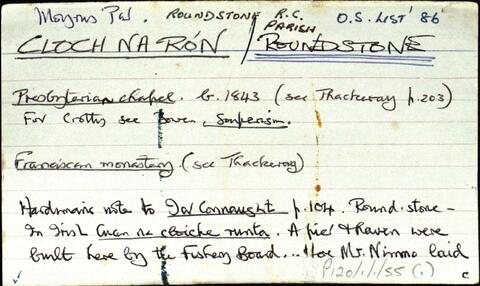 Moyrus Par. ROUNDSTONE R.C. PARISH O.S. LIST '86
CLOCH NA RÓN / ROUNDSTONE
Presbyterian chapel. b. 1843 (see Thackeray p.203)
For Crotty see Bowen, Souperism.
Franciscan monastery. (see Thackeray)
Hardiman's note to Iar Connaught p.104. Round-stone -
In Irish Cuan na cloiche runta. A pier & haven were
built here by the Fishery Board... Here Mr. Nimmo laid
P120/1/1/55 (i)
c